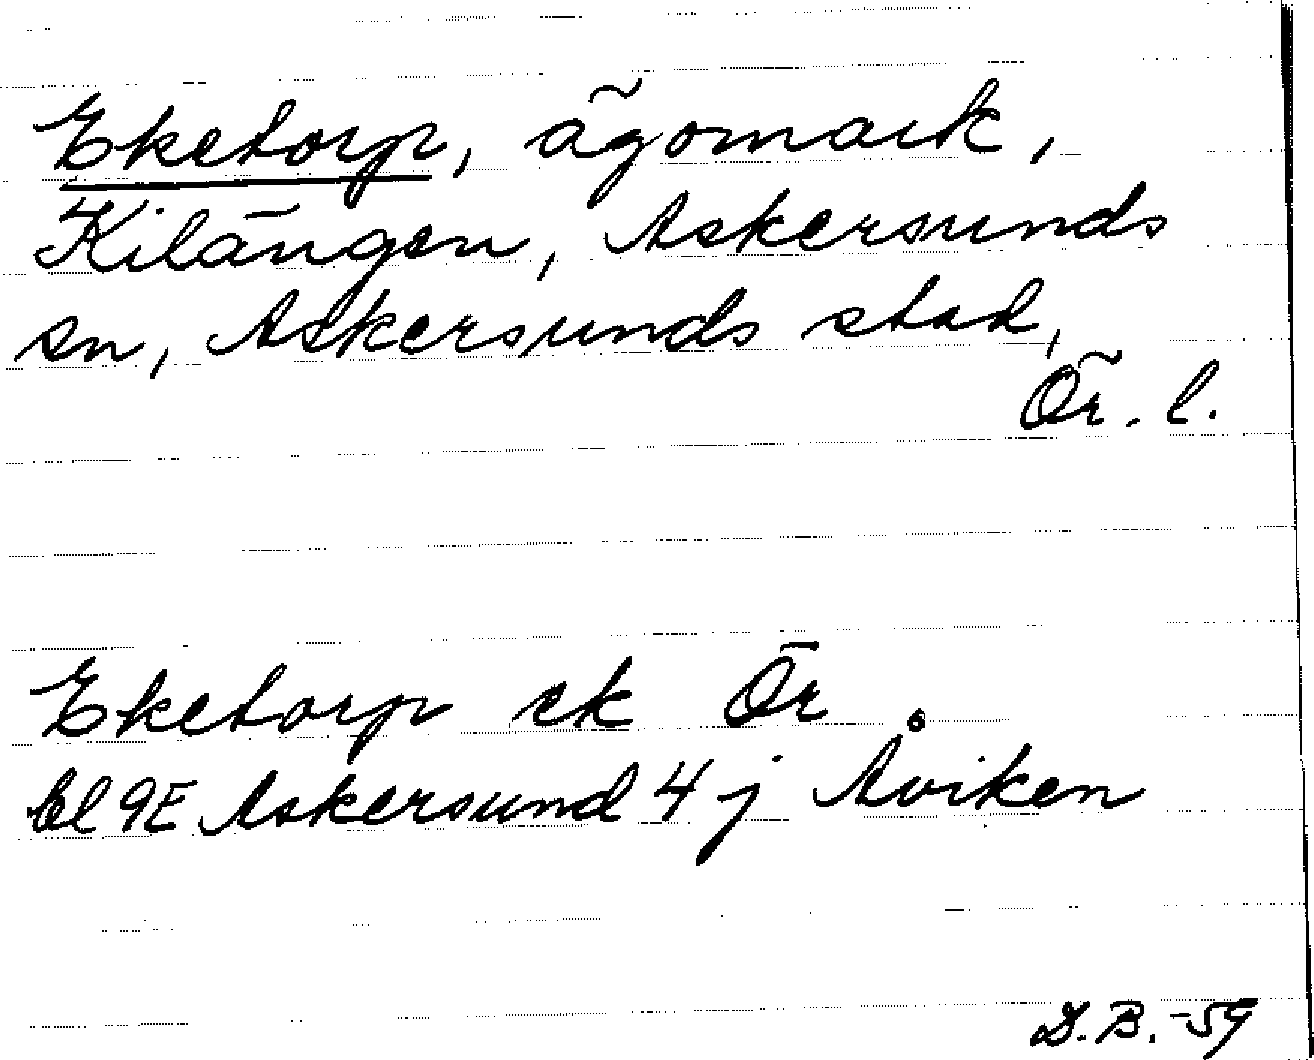 Eketorp, ägomark,
Kilängen, Askersunds
sn, Askersunds stad,
Ör. l.
Eketorp ek Ör
bl 9E Askersund 4 j Åviken
D.B.-59